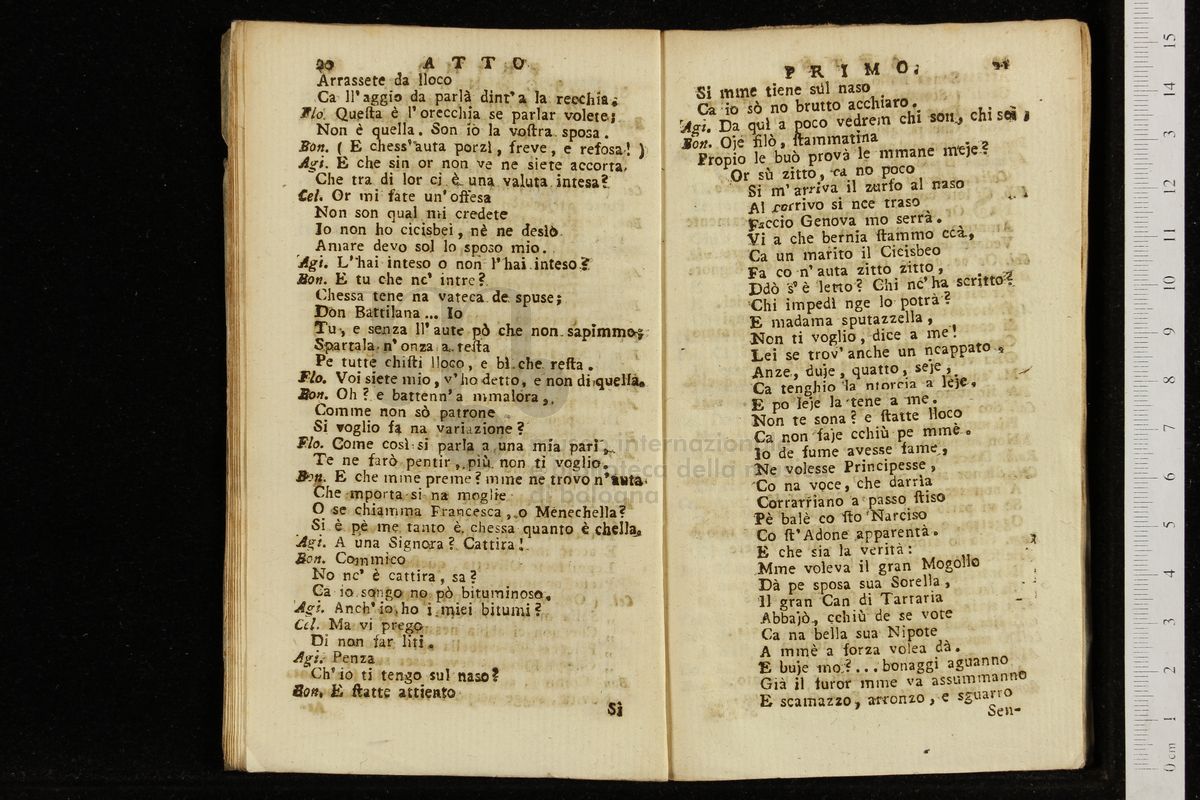 20 ATTO
Arrassete da lloco
Ca ll'aggio da parlà dint'a la recchia.
Flo. Queſta è l'orecchia se parlar volete;
Non è quella. Son io la voſtra sposa.
Bon. ( E chess'auta porzì, freve, e refosa! )
Agi. E che sin or non ve ne siete accorta.
Che tra di lor ci è una valuta intesa?
Cel. Or mi fate un'offesa
Non son qual mi credete
Io non ho cicisbei, nè ne desìo
Amare devo sol lo sposo mio.
Agi. L'hai inteso o non l'hai inteso?
Bon. E tu che nc' intre?
Chessa tene na vateca de spuse;
Don Battilana ... Io
Tu, e senza ll'aute pò che non sapimmo;
Spartala n'onza a teſta
Pe tutte chiſti lloco, e bì che reſta.
Flo. Voi siete mio, v'ho detto, e non di quella.
Bon. Oh? e battenn'a mmalora,
Comme non sò patrone
Si voglio fa na variazione?
Flo. Come così si parla a una mia pari,
Te ne farò pentir, più non ti voglio.
Bon. E che mme preme? mme ne trovo n'auta
Che mporta si na moglie
O se chiamma Francesca, o Menechella?
Si è pè me tanto è chessa quanto è chella.
Agi. A una Signora? Cattira!
Bon. Commico
No nc' è cattira, sa?
Ca io songo no pò bituminoso.
Agi. Anch'io ho i miei bitumi?
Cel. Ma vi prego
Di non far liti.
Agi. Penza
Ch'io ti tengo sul naso?
Bon. E ſtatte attiento
Sì
PRIMO. 21
Si mme tiene sul naso
Ca io sò no brutto acchiaro.
Agi. Da quì a poco vedrem chi son, chi sei
Bon. Oje filò, ſtammatina
Propio le buò provà le mmane meje?
Or sù zitto, ca no poco
Si m'arriva il zurfo al naso
Al corrivo si nce traso
Faccio Genova mo serrà.
Vi a che bernia ſtammo ccà,
Ca un marito il Cicisbeo
Fa co n'auta zitto zitto,
Ddò s'è letto? Chi nc'ha scritto?
Chi impedì nge lo potrà?
E madama sputazzella,
Non ti voglio, dice a me!
Lei se trov'anche un ncappato,
Anze, duje, quatto, seje,
Ca tenghio la morcia a leje,
E po leje la tene a me.
Non te sona? e ſtatte lloco
Ca non faje cchiù pe mmè.
Io de fume avesse fame,
Ne volesse Principesse,
Co na voce, che darria
Corrarriano a passo ſtiso
Pè balè co ſto Narciso
Co ſt'Adone apparentà.
E che sia la verità:
Mme voleva il gran Mogollo
Dà pe sposa sua Sorella,
Il gran Can di Tartaria
Abbajò, cchiù de se vote
Ca na bella sua Nipote
A mmè a forza volea dà.
E buje mo?...bonaggi aguanno
Già il furor mme va assummanno
E scamazzo, arronzo, e sguarro
Sen-